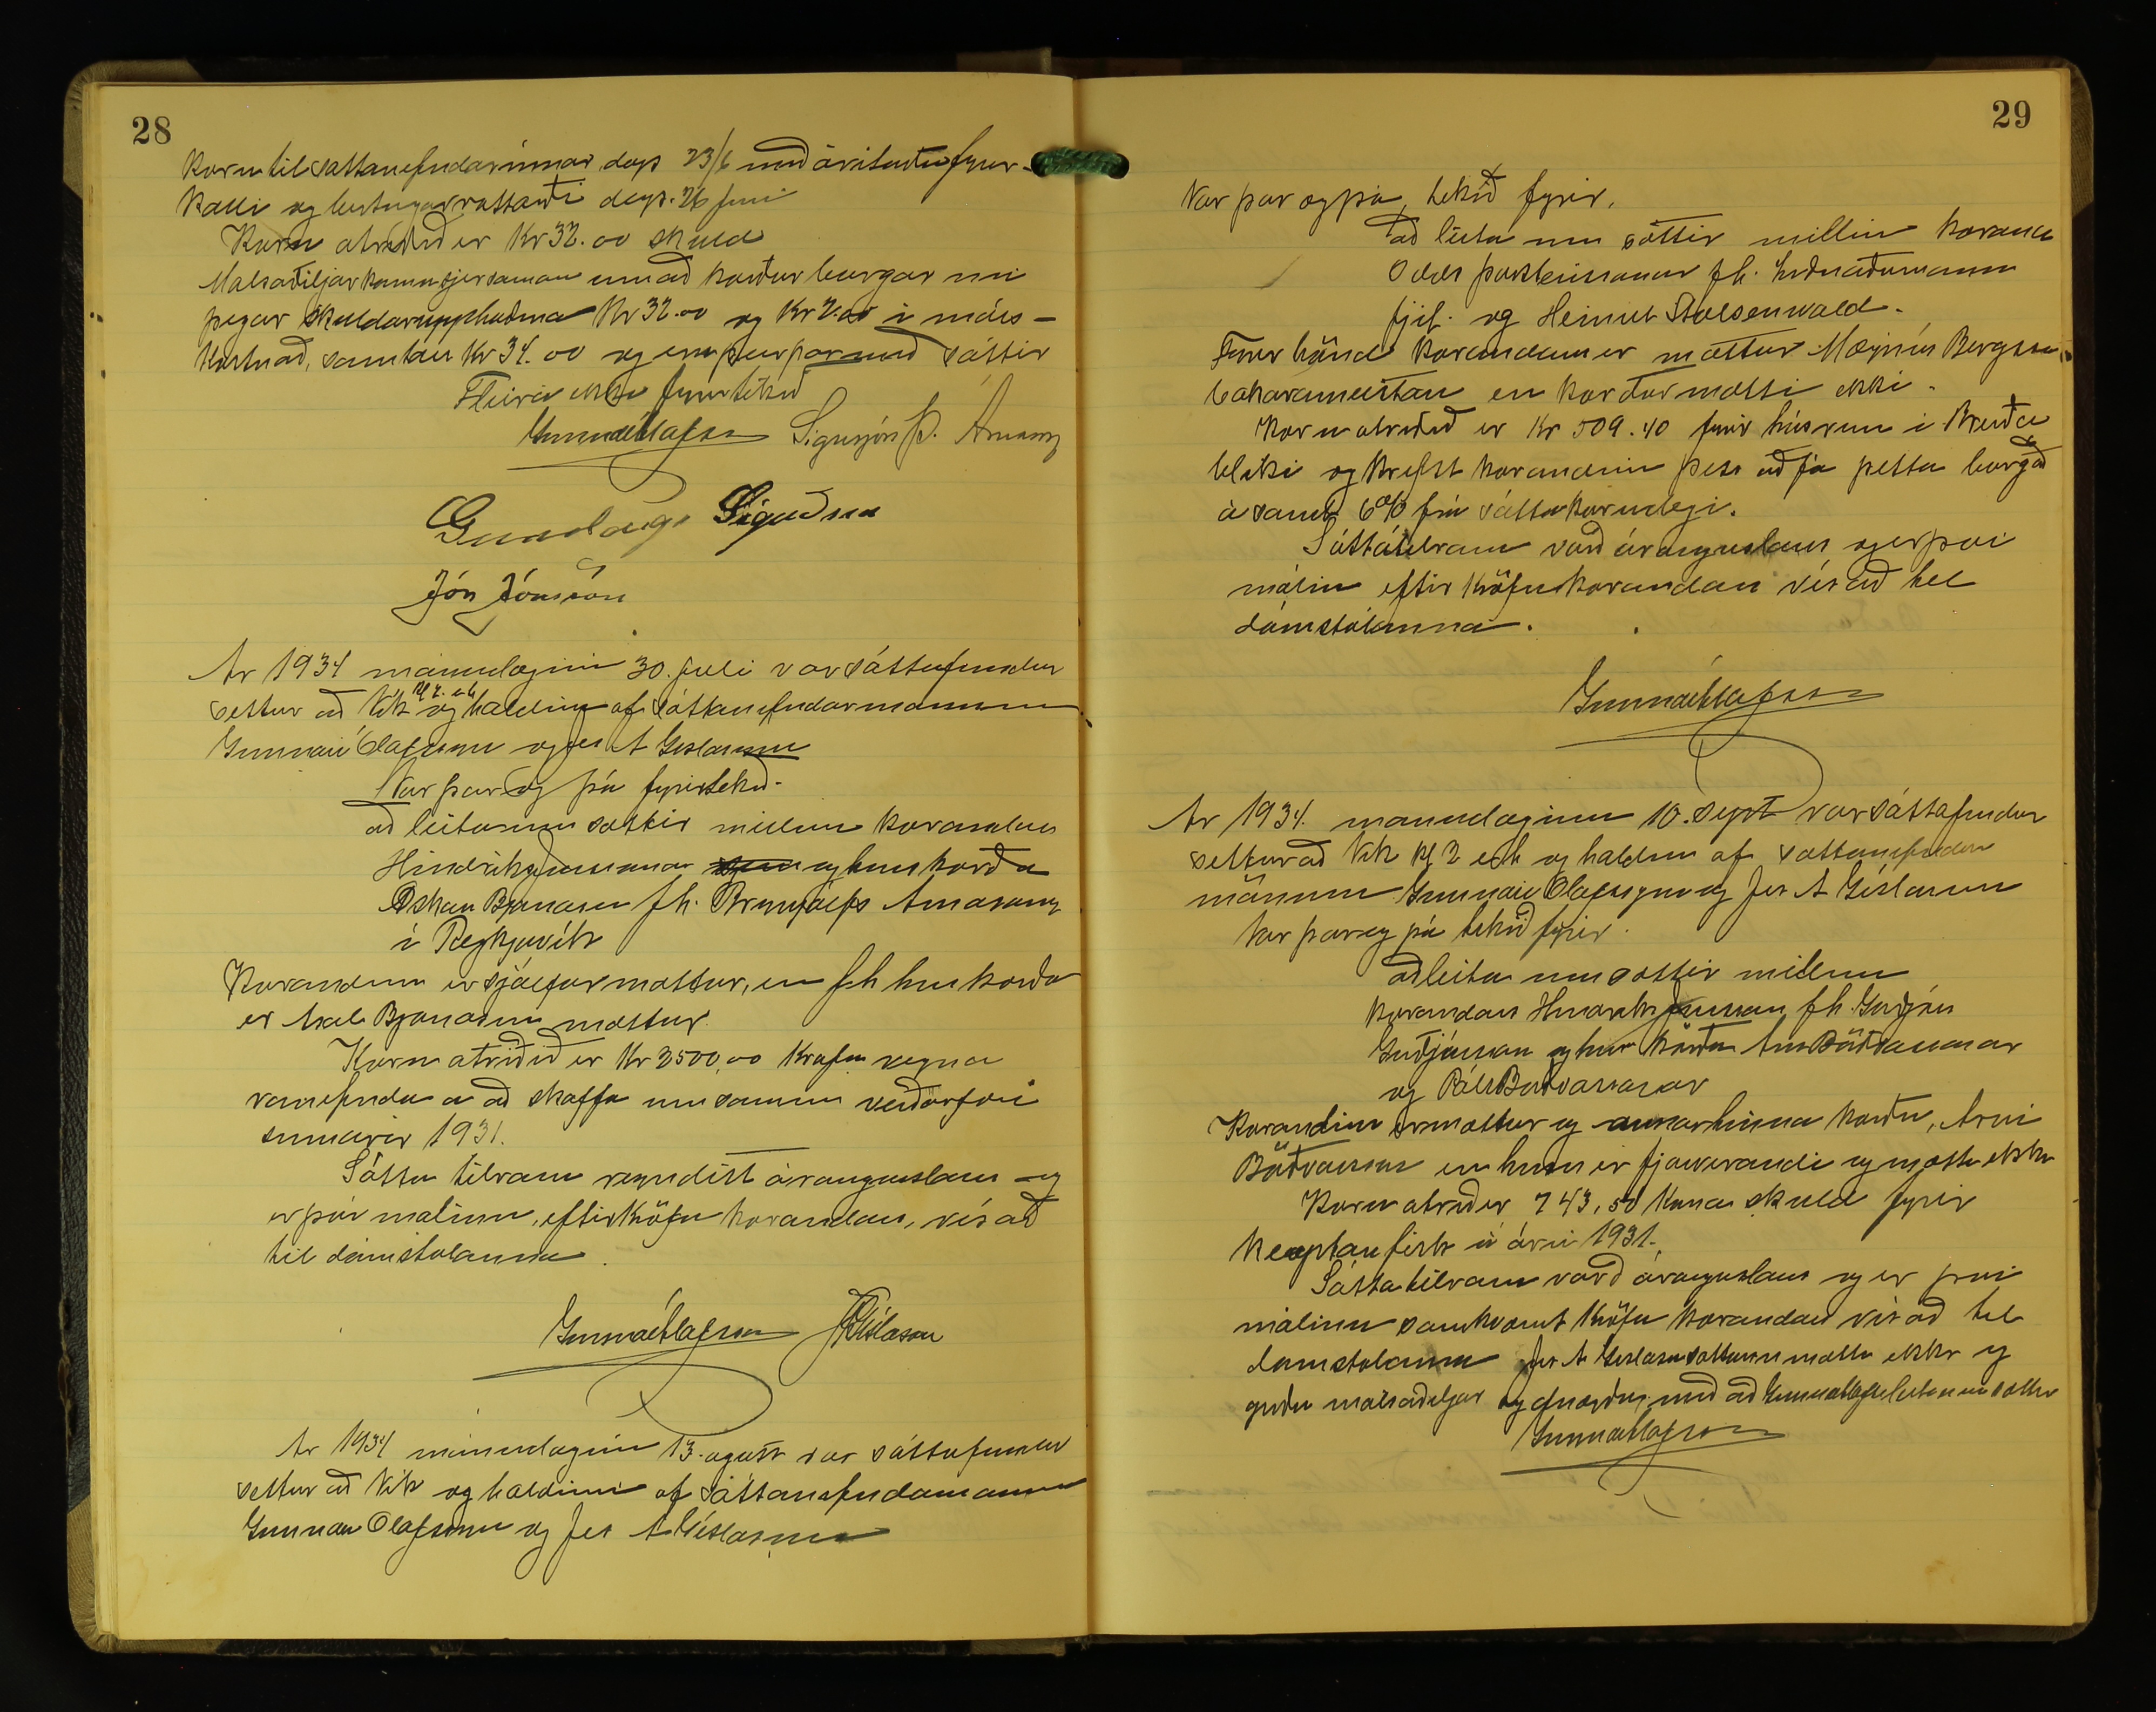 28
Kæru til sáttanefndarinnar dags 23/6 með árituðu fyrir-
kalli og birtingarvottorði dags. 26 juni
Kæru atriðið er Kr 32.00 skuld
Malsaðiljar komu sjer saman um að kærður borgar nú
þegar skuldarupphæðina Kr 32.00 og Kr 2.00 í máls-
kostnað, samtals Kr 34.00 og eru þeir þar með sáttir
Fleira ekki fyrirtekið
Gunnar Ólafsson Sigurjón Þ. Árnason
Gunnlaugr Sigurðsson
Jón Jónsson
Ár 1934 mánudaginn 30. juli var sáttafundur
settur að Vík kl 2. e h og haldinn af sáttanefndarmönnum
Gunnari Ólafssyni og Jes A Gíslasyni
Var þar og þá fyrirtekið.
að leita um sættir millum kærandans
Hindriks Jónssonar og hins kærða
Óskars Bjarnasen f.h. Brynjólfs Árnasonar
í Reykjavík
Kærandinn er sjálfur mættur, en f h hins kærða
er Karl Bjarnasen mættur.
Kæru atriðið er Kr 2500,00 Krafa vegna
vanefnda á að skaffa um saminn veiðarfæri
sumarið 1931.
Sátta tilraun reyndist árangurslaus og
er því málinu, eftir kröfu kærandans, vísað
til dómstólanna.
Gunnar Ólafsson JGíslason
Ár 1934 mánudaginn 13. agúst var sáttafundur
settur að Vík og haldinn af sáttanefndamönnum
Gunnari Ólafssyni og Jes A Gíslasyni
29
Var þar og þá, tekið fyrir.
að leita um sættir millum kæranda
Odds Þorsteinssonar f.h. Iðnaðarmanna
fjel. og Heinut Stolsenwald.
Fyrir hönd kærandans er mættur Magnús Bergsson
bakarameistari en kærður mætti ekki.
Kæru atriðið er Kr 509.40 fyrir húsrúm í Breiða
bliki og krefst kærandinn þess að fá þetta borgað
ásamt 6% frá sáttakærudegi.
Sáttatilraun varð árangurslaus og er því
málinu eftir kröfu kærandans vísað til
dómstólanna.
Gunnar Ólafsson
Ár 1934. mánudaginn 10. sept var sáttafundur
settur að Vík kl 2 eh og haldinn af sáttanefndar
mönnum Gunnari Ólafssyni og Jes A Gíslasyni
Var þar og þá tekið fyrir.
að leita um sættir millum
kærandans Hinriks Jónssonar f.h. Guðjóns
Guðjónssonar og hins kærða Árna Böðvarssonar
og Páls Böðvarssonar
Kærandinn er mættur og annar hinna kærðu, Árni
Böðvarsson en hinn er fjarverandi og mætti ekki
Kæru atriðið er 743,50 Króna skuld fyrir
keyptan fisk á árinu 1931.
Sáttatilraun varð árangurslaus og er því
málinu samkvæmt kröfu kærandans vísað til
dómstolanna Jes A Gíslason sáttam mætti ekki og
gerðu málsaðiljar sig ánægðir með að Gunnar Ólafss leitaði um sættir
Gunnar Ólafsson